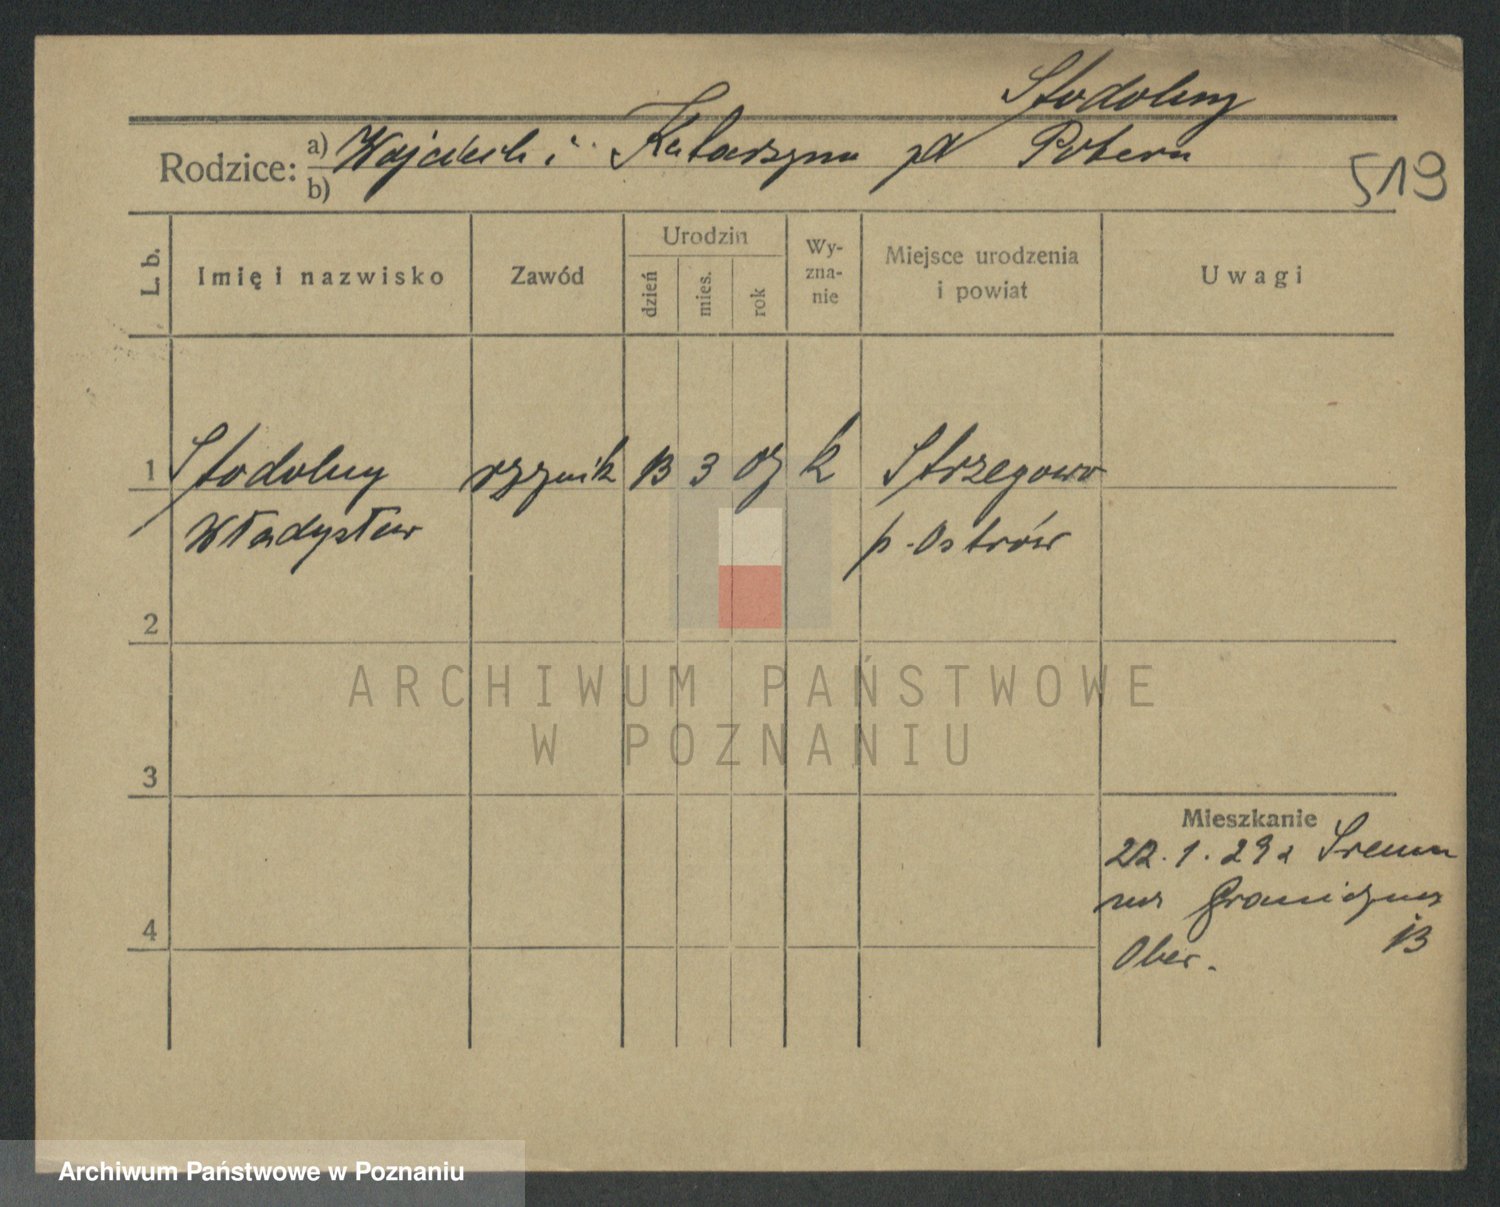 Stodolny
Rodzice: a) Wojciech i Katarzyna zd Potera
b)
519
L. b.
Imię i nazwisko
Zawód
Urodzin
dzień
mies.
rok
Wy-
zna-
nie
Miejsce urodzenia
i powiat
Uwagi
1 Stodolny 13 3 07 k Strzegowo
Władysław p. Ostrów
2
ARCHIWUM PAŃSTWOWE
W POZNANIU
3
Mieszkanie
22.1.29 z Śremu
Graniczna
4
13
Ober.
Archiwum Państwowe w Poznaniu